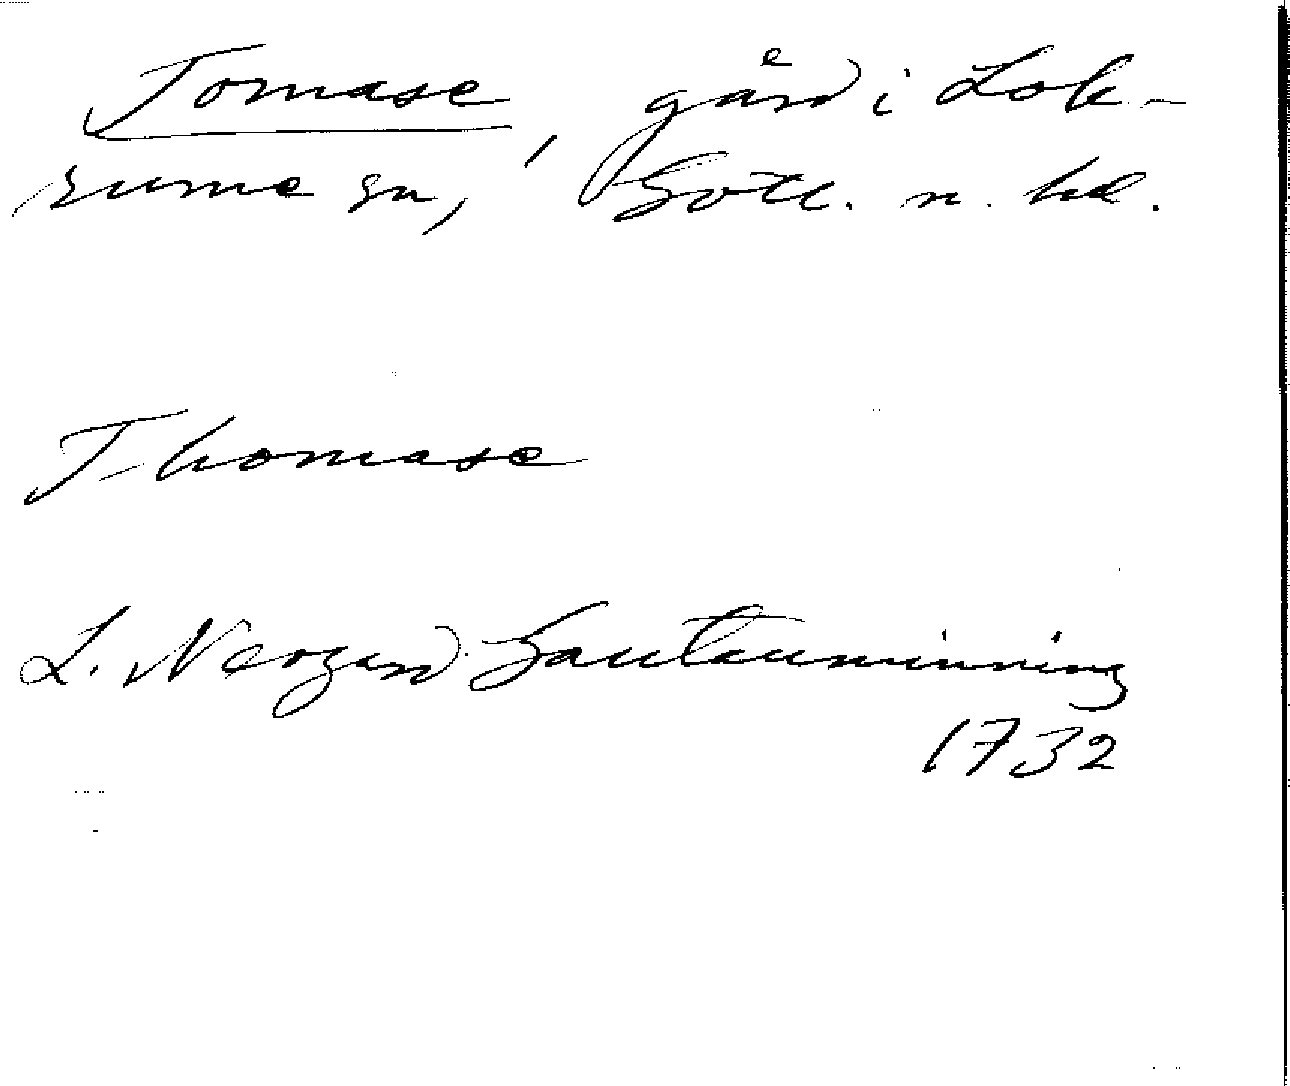 Tomase, gård i Lok-
rume sn, Gotl. n. hd.
Thomase
L. Nergard Lantmeinning
1732